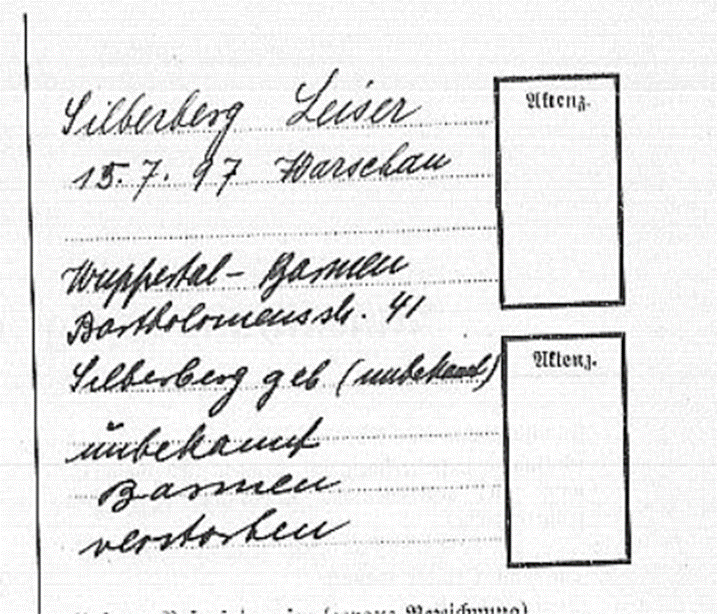 Silberberg Leiser
Aktenz.
15. 7. 97 Warschau
Wuppertal - Barmen
Bartholomeusstr. 41
Aktenz.
Silberberg geb (unbekannt)
unbekannt
Barmen
verstorben